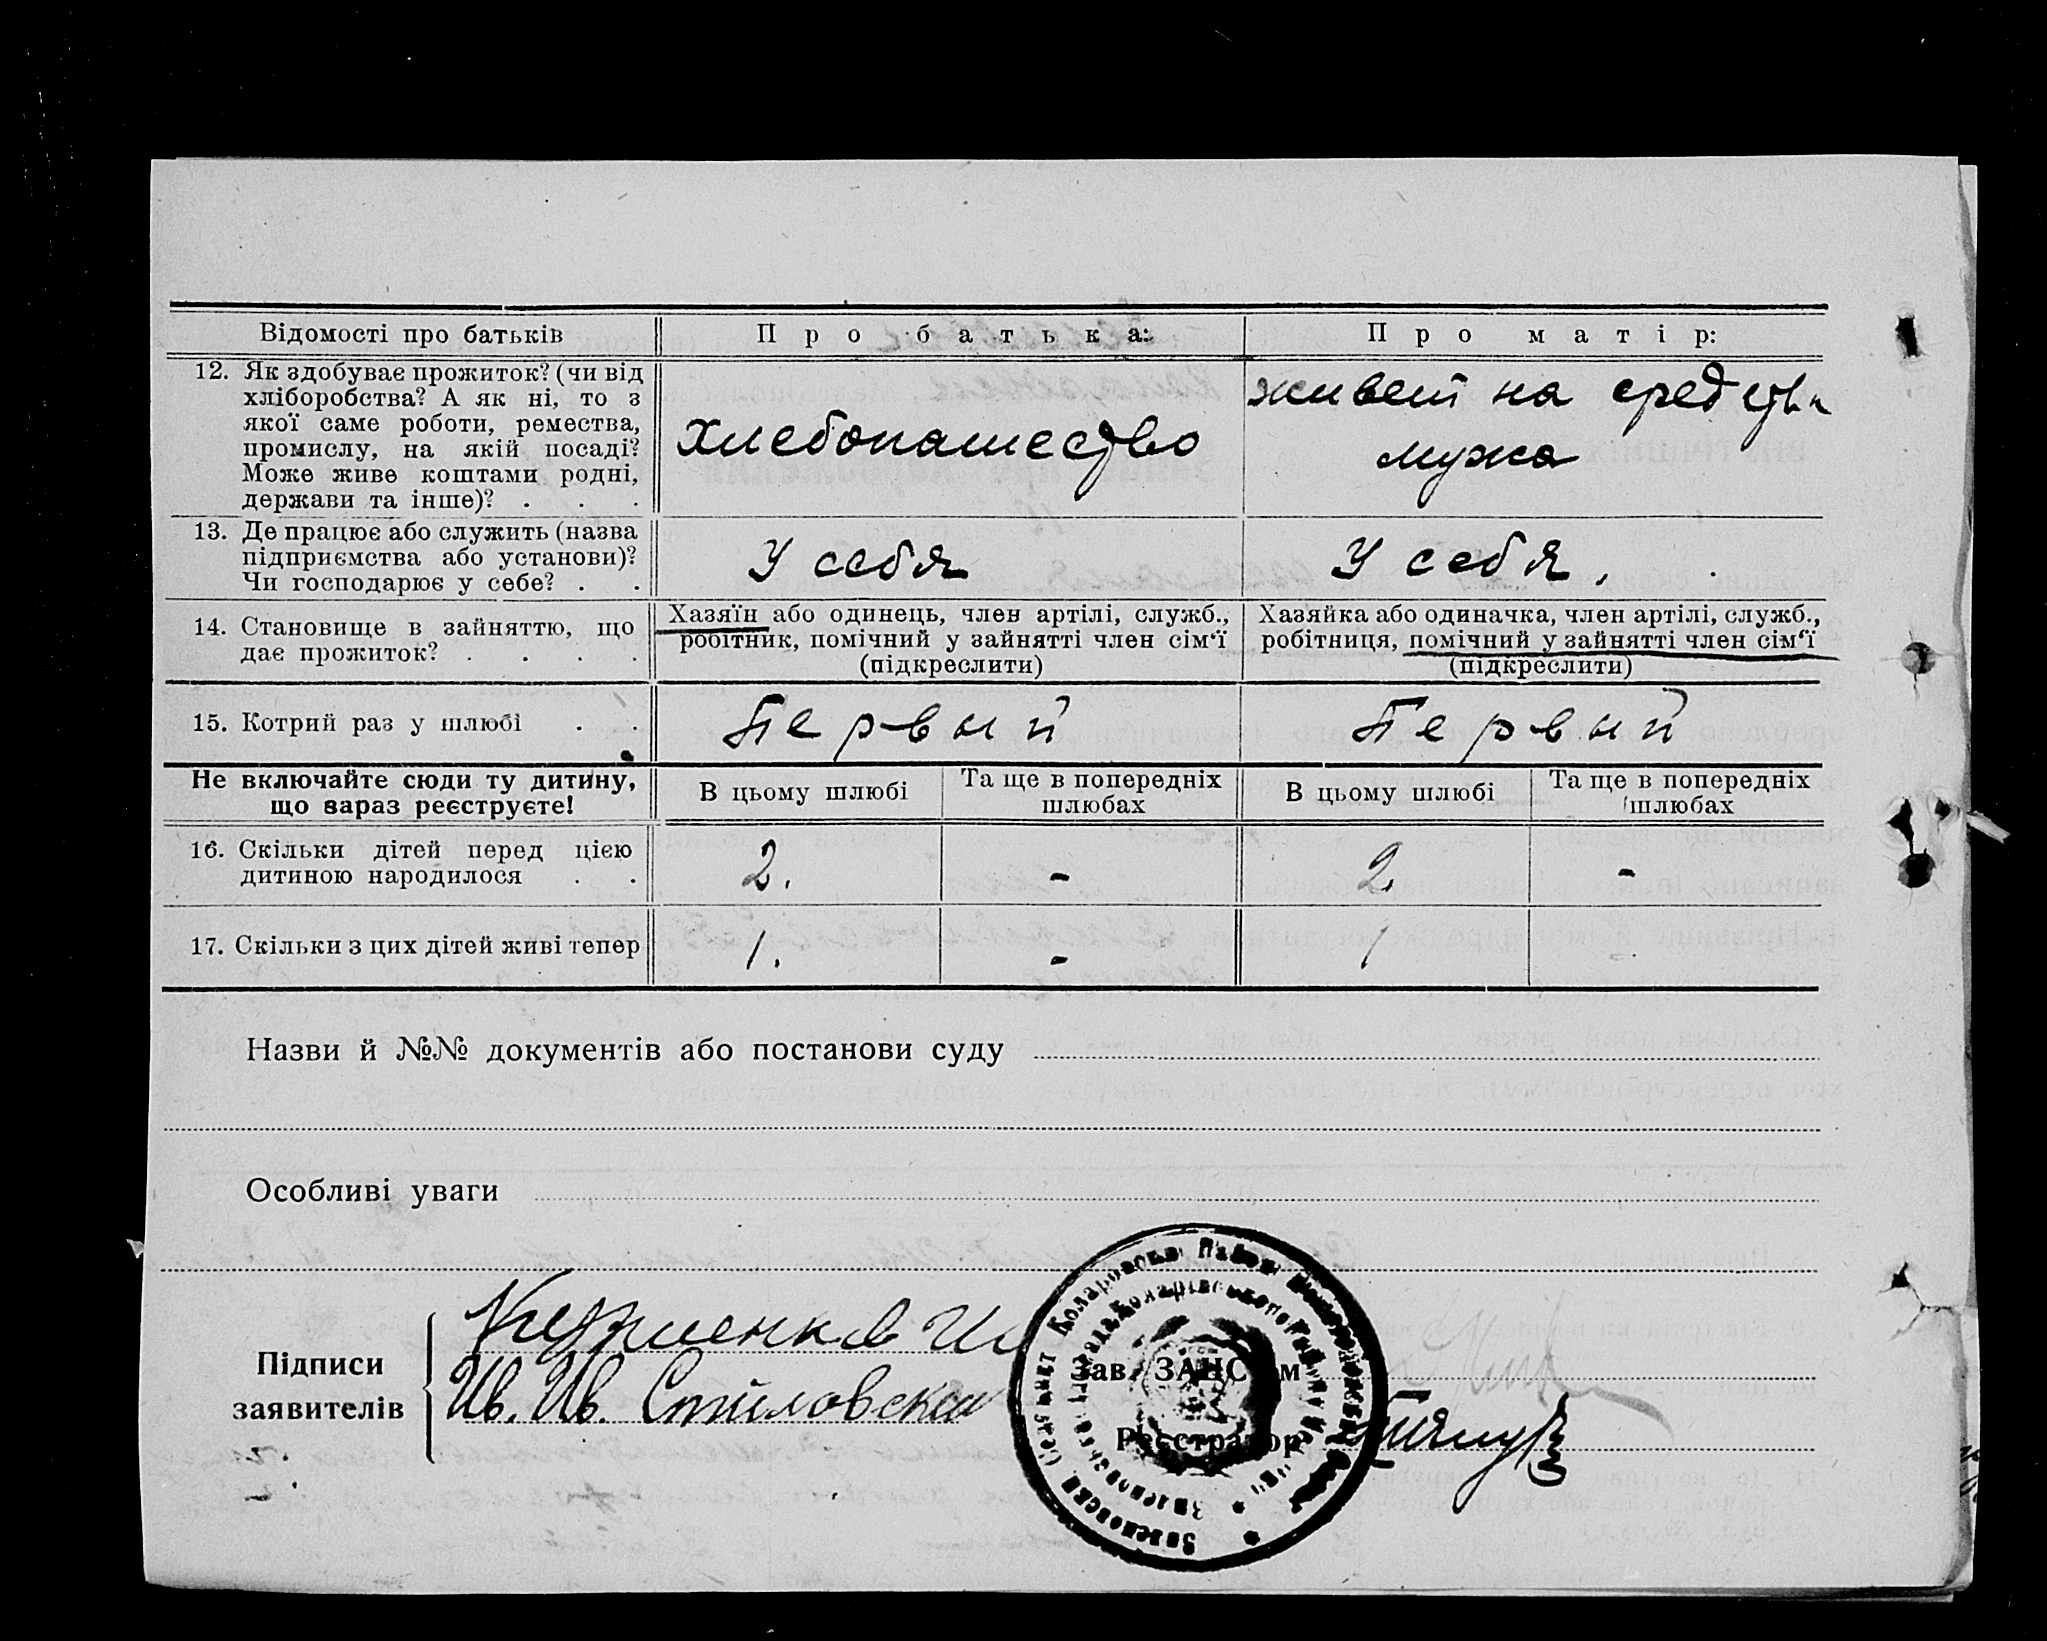 Відомості про батьків
Про батька:
Про матір:
12. Як здобуває прожиток? (чи від
хліборобства? А як ні, то з
якої саме роботи, ремества,
промислу, на якій посаді?
Може живе коштами родні,
держави та інше)? . . .
Хлебопашество
живет на средств
мужа
13. Де працює або служить (назва
підприємства або установи)?
Чи господарює у себе? . .
У себя
У себя.
14. Становище в зайняттю, що
дає прожиток? . . . .
Хазяїн або одинець, член артілі, служб.,
робітник, помічний у зайнятті член сім'ї
(підкреслити)
Хазяйка або одиначка, член артілі, служб.,
робітниця, помічний у зайнятті член сім'ї
(підкреслити)
15. Котрий раз у шлюбі . .
Первый
Первый
Не включайте сюди ту дитину,
що зараз реєструєте!
В цьому шлюбі
Та ще в попередніх
шлюбах
В цьому шлюбі
Та ще в попередніх
шлюбах
16. Скільки дітей перед цією
дитиною народилося . .
2.
-
2
-
17. Скільки з цих дітей живі тепер
1.
-
1
Назви й №№ документів або постанови суду
Особливі уваги
Підписи
заявителів
Ив. Ив.
Зав. ЗАГСом
Реєстратор